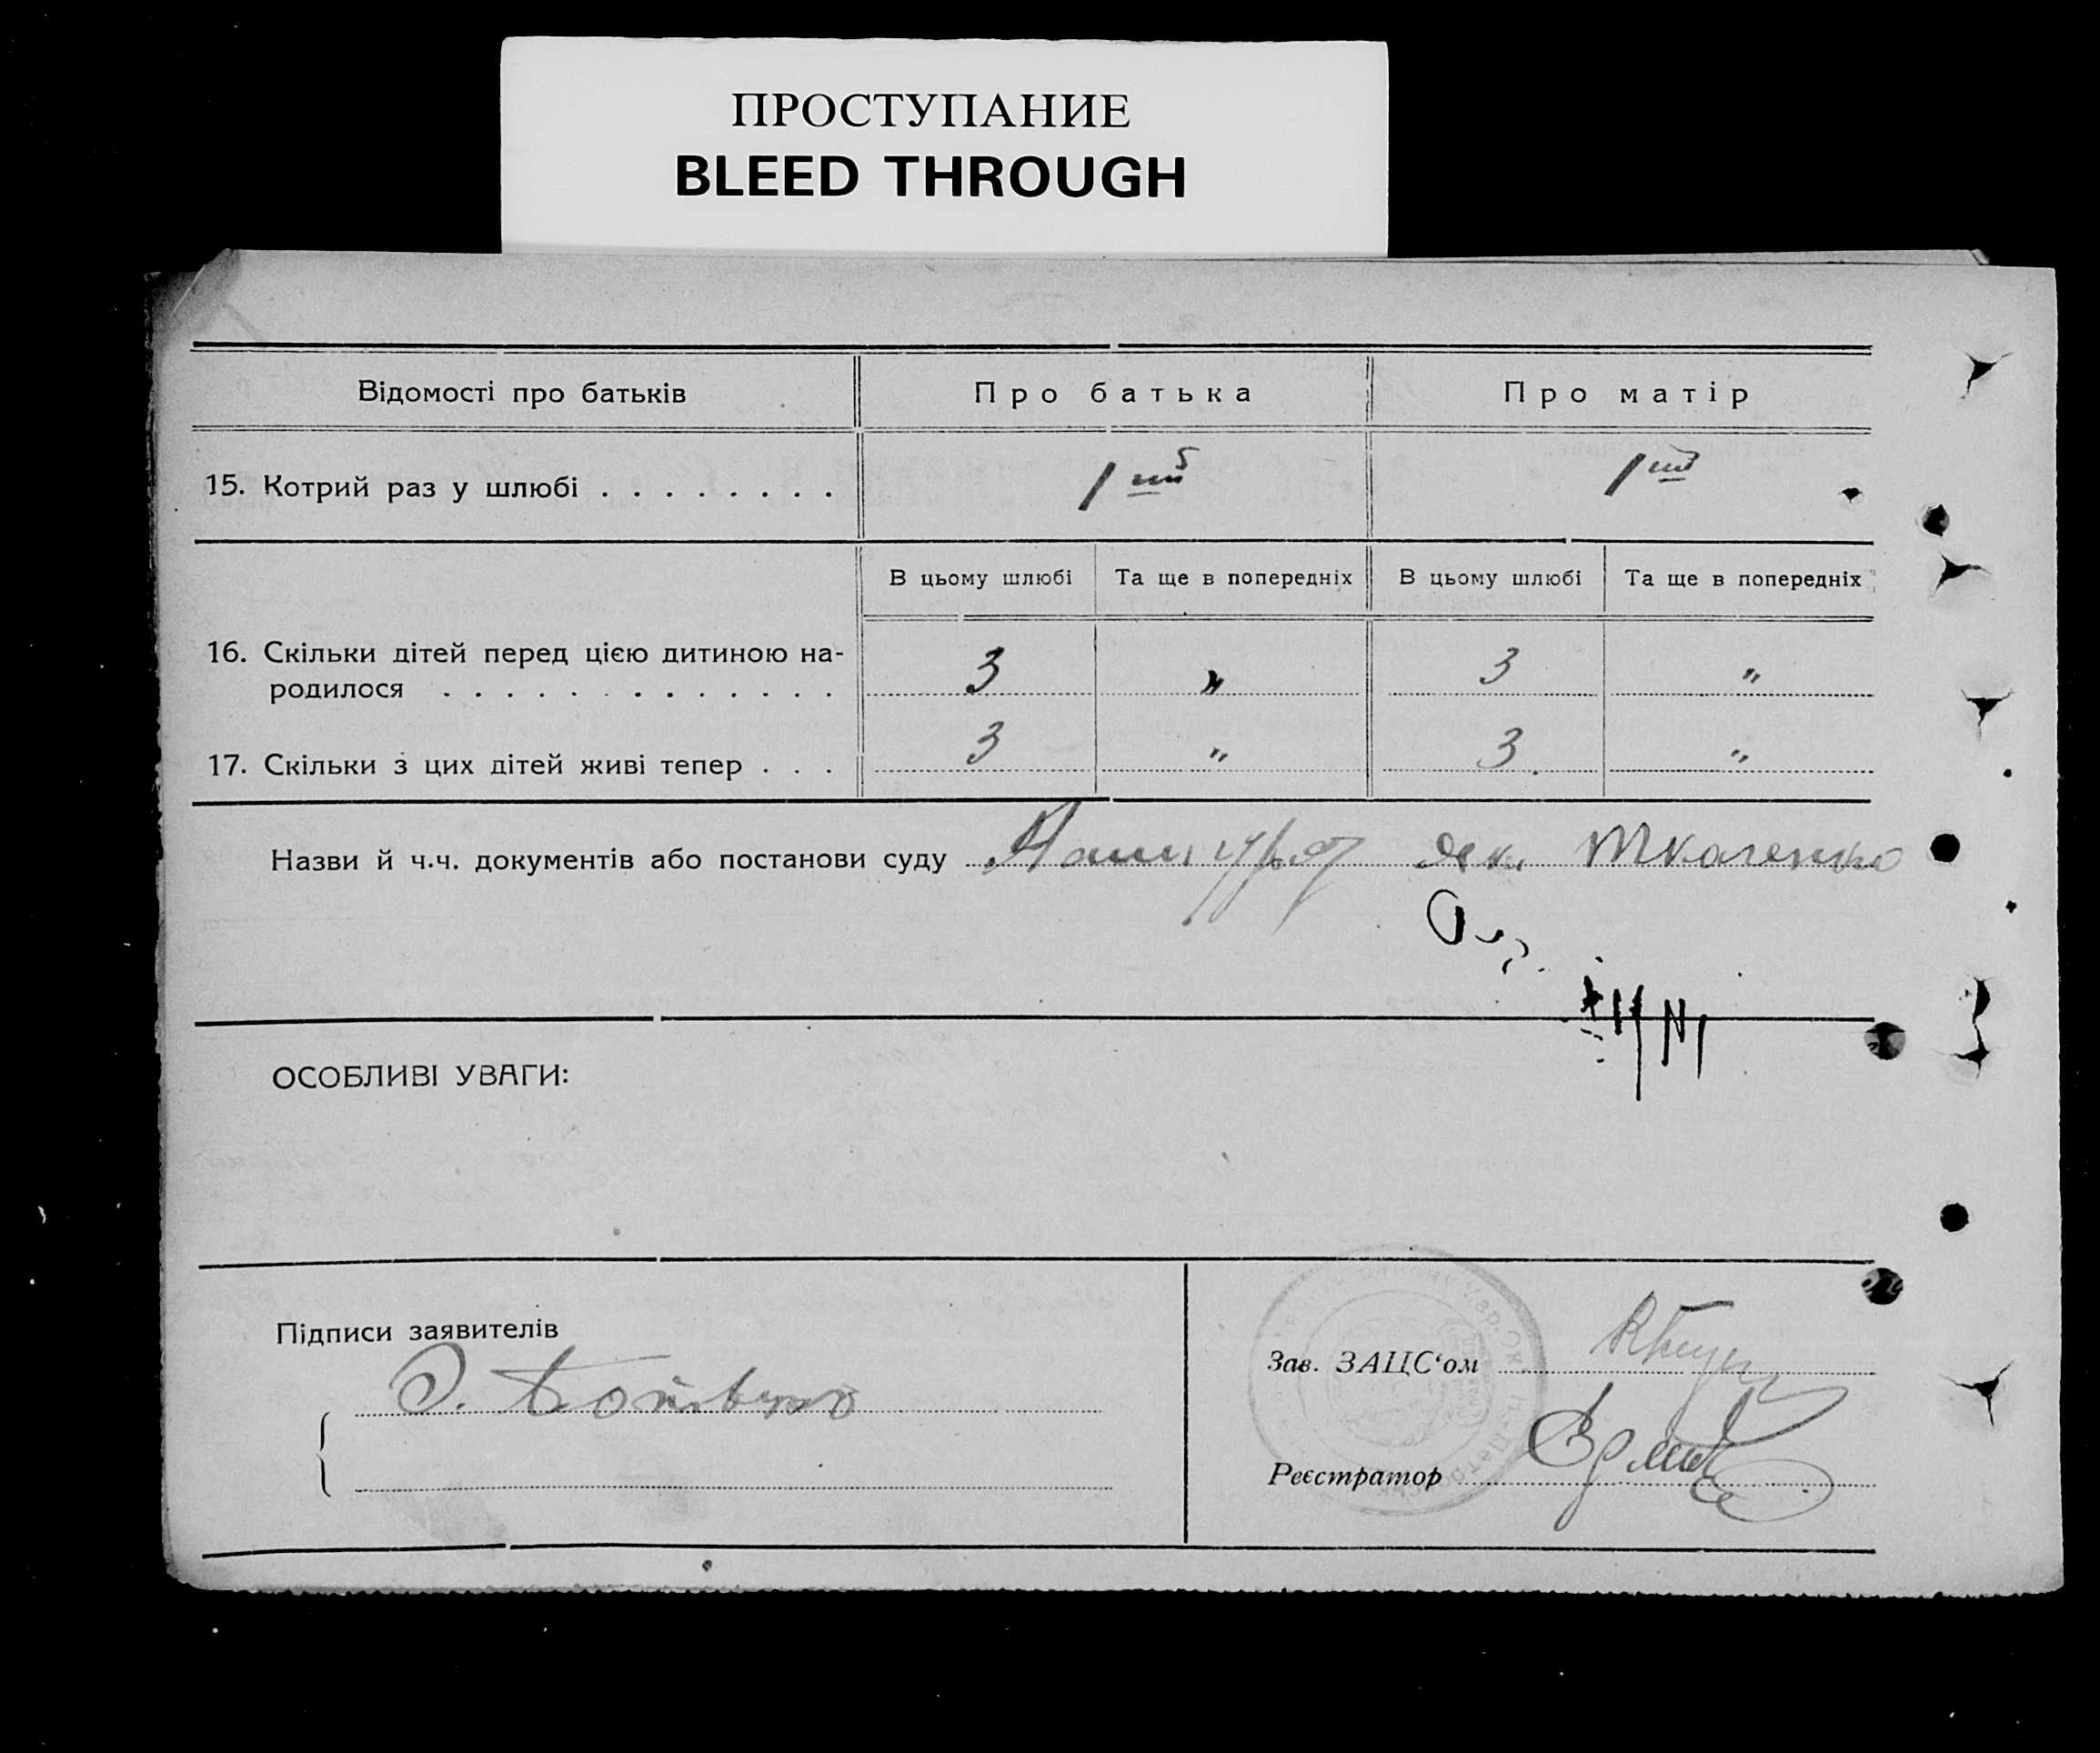 ПРОСТУПАНИЕ
BLEED THROUGH
Відомості про батьків Про батька Про матір
15. Котрий раз у шлюбі . . . . . . . . 1ший 1ший
В цьому шлюбі Та ще в попередніх В цьому шлюбі Та ще в попередніх
16. Скільки дітей перед цією дитиною на-
родилося . . . . . . . . . . . . . 3 „ 3 „
17. Скільки з цих дітей живі тепер . . . 3 „ 3 „
Назви й ч.ч. документів або постанови суду Ткаченко
ОСОБЛИВІ УВАГИ:
Підписи заявителів
Зав. ЗАЦС‘ом
Реєстратор